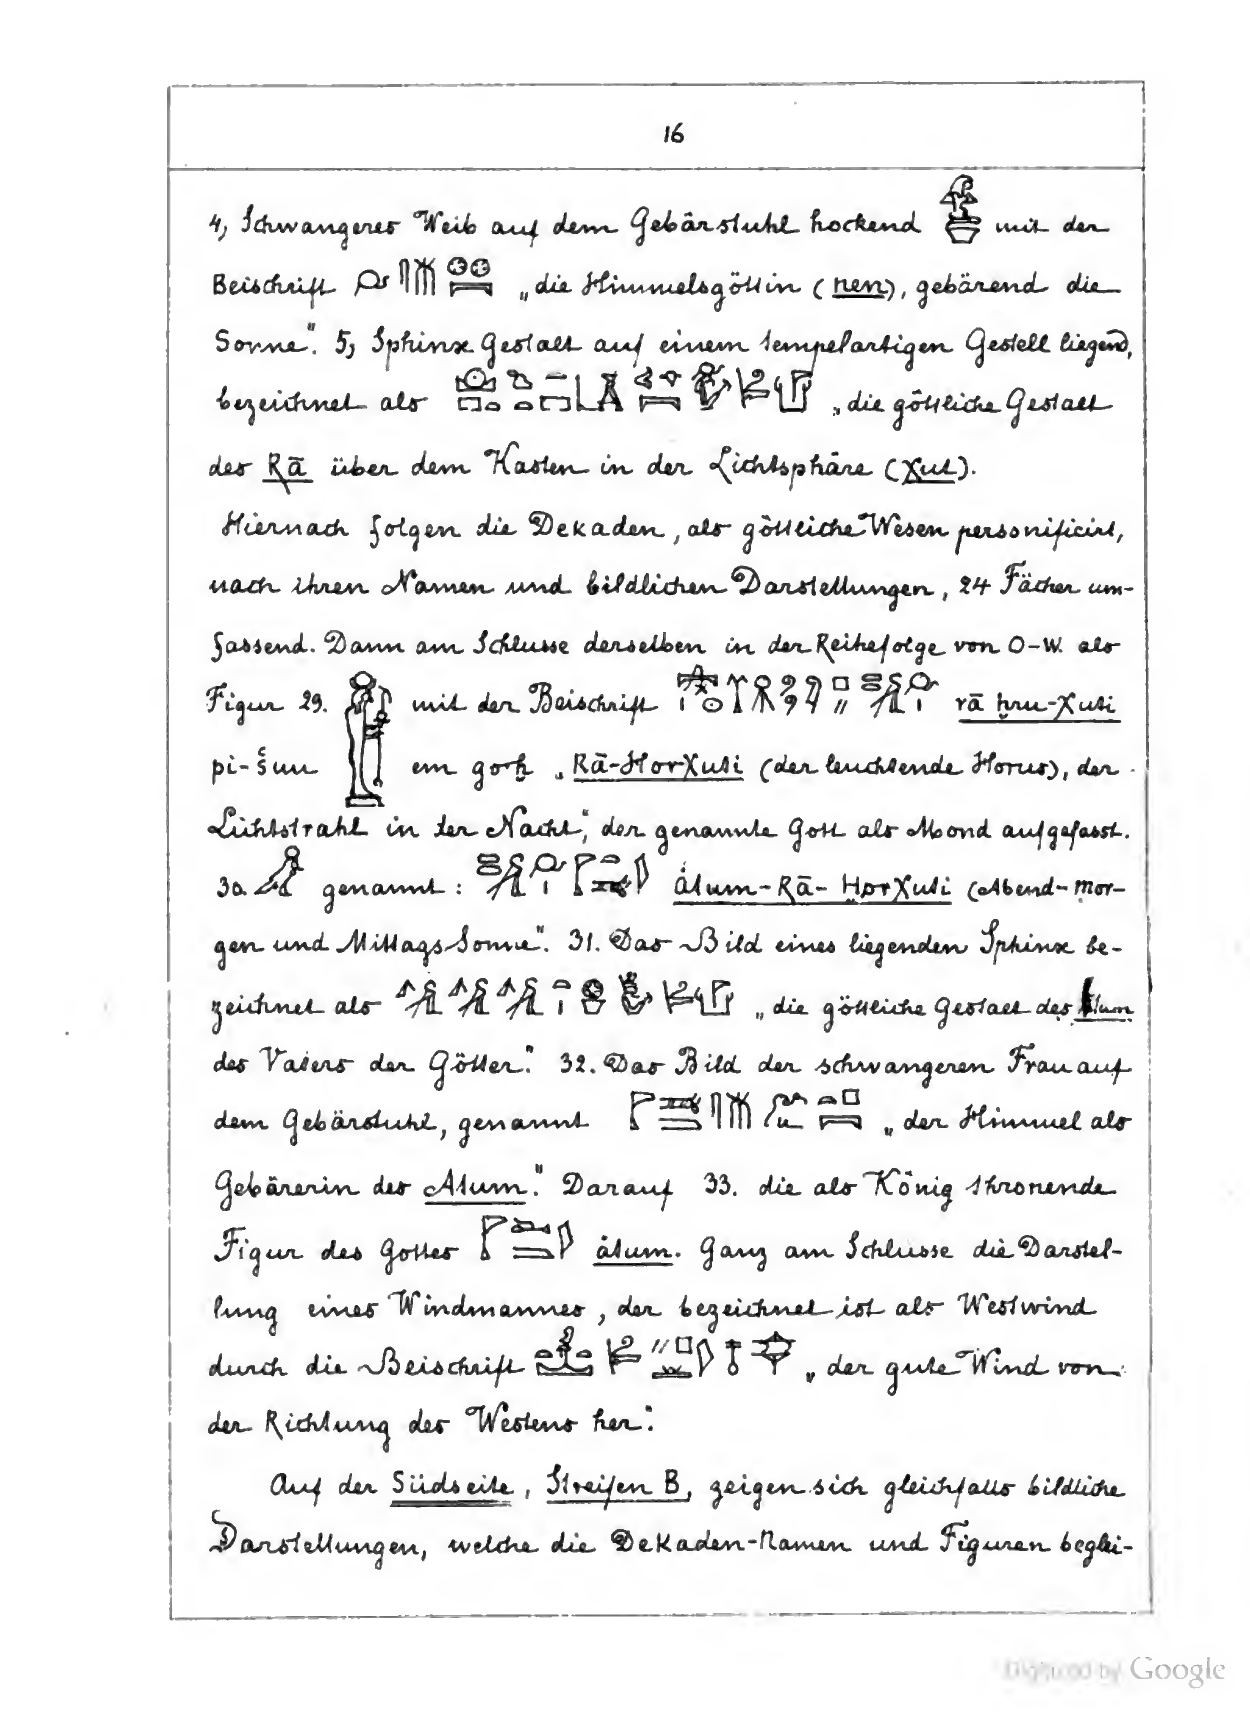 16
4, Schwangeres Weib auf dem Gebärstuhl hockend mit der
Beischrift „die Himmelsgöttin (nen), gebärend die
Sonne“. 5, Sphinx Gestalt auf einem tempelartigen Gestell liegend,
bezeichnet als „die göttliche Gestalt
des Rā über dem Kasten in der Lichtsphäre (χut).
Hiernach folgen die Dekaden, als göttliche Wesen personificirt,
nach ihren Namen und bildlichen Darstellungen, 24 Fächer um-
fassend. Dann am Schlusse derselben in der Reihefolge von O-W. als
Figur 29. mit der Beischrift rā ḥru-χuti
pi-šun em gorḥ „Rā-Horχuti (der leuchtende Horus), der
Lichtstrahl in der Nacht“, der genannte Gott als Mond aufgefasst.
30. genannt: åtum-Rā-Ḥorχuti (Abend-Mor-
gen und Mittags-Sonne“. 31. Das Bild eines liegenden Sphinx be-
zeichnet als „die göttliche Gestalt des Atum
des Vaters der Götter“. 32. Das Bild der schwangeren Frau auf
dem Gebärstuhl, genannt „der Himmel als
Gebärerin des Atum“. Darauf 33. die als König thronende
Figur des Gottes åtum. Ganz am Schlusse die Darstel-
lung eines Windmannes, der bezeichnet ist als Westwind
durch die Beischrift „der gute Wind von
der Richtung des Westens her“.
Auf der Südseite, Streifen B, zeigen sich gleichfalls bildliche
Darstellungen, welche die Dekaden-Namen und Figuren beglei-
Digitized by Google